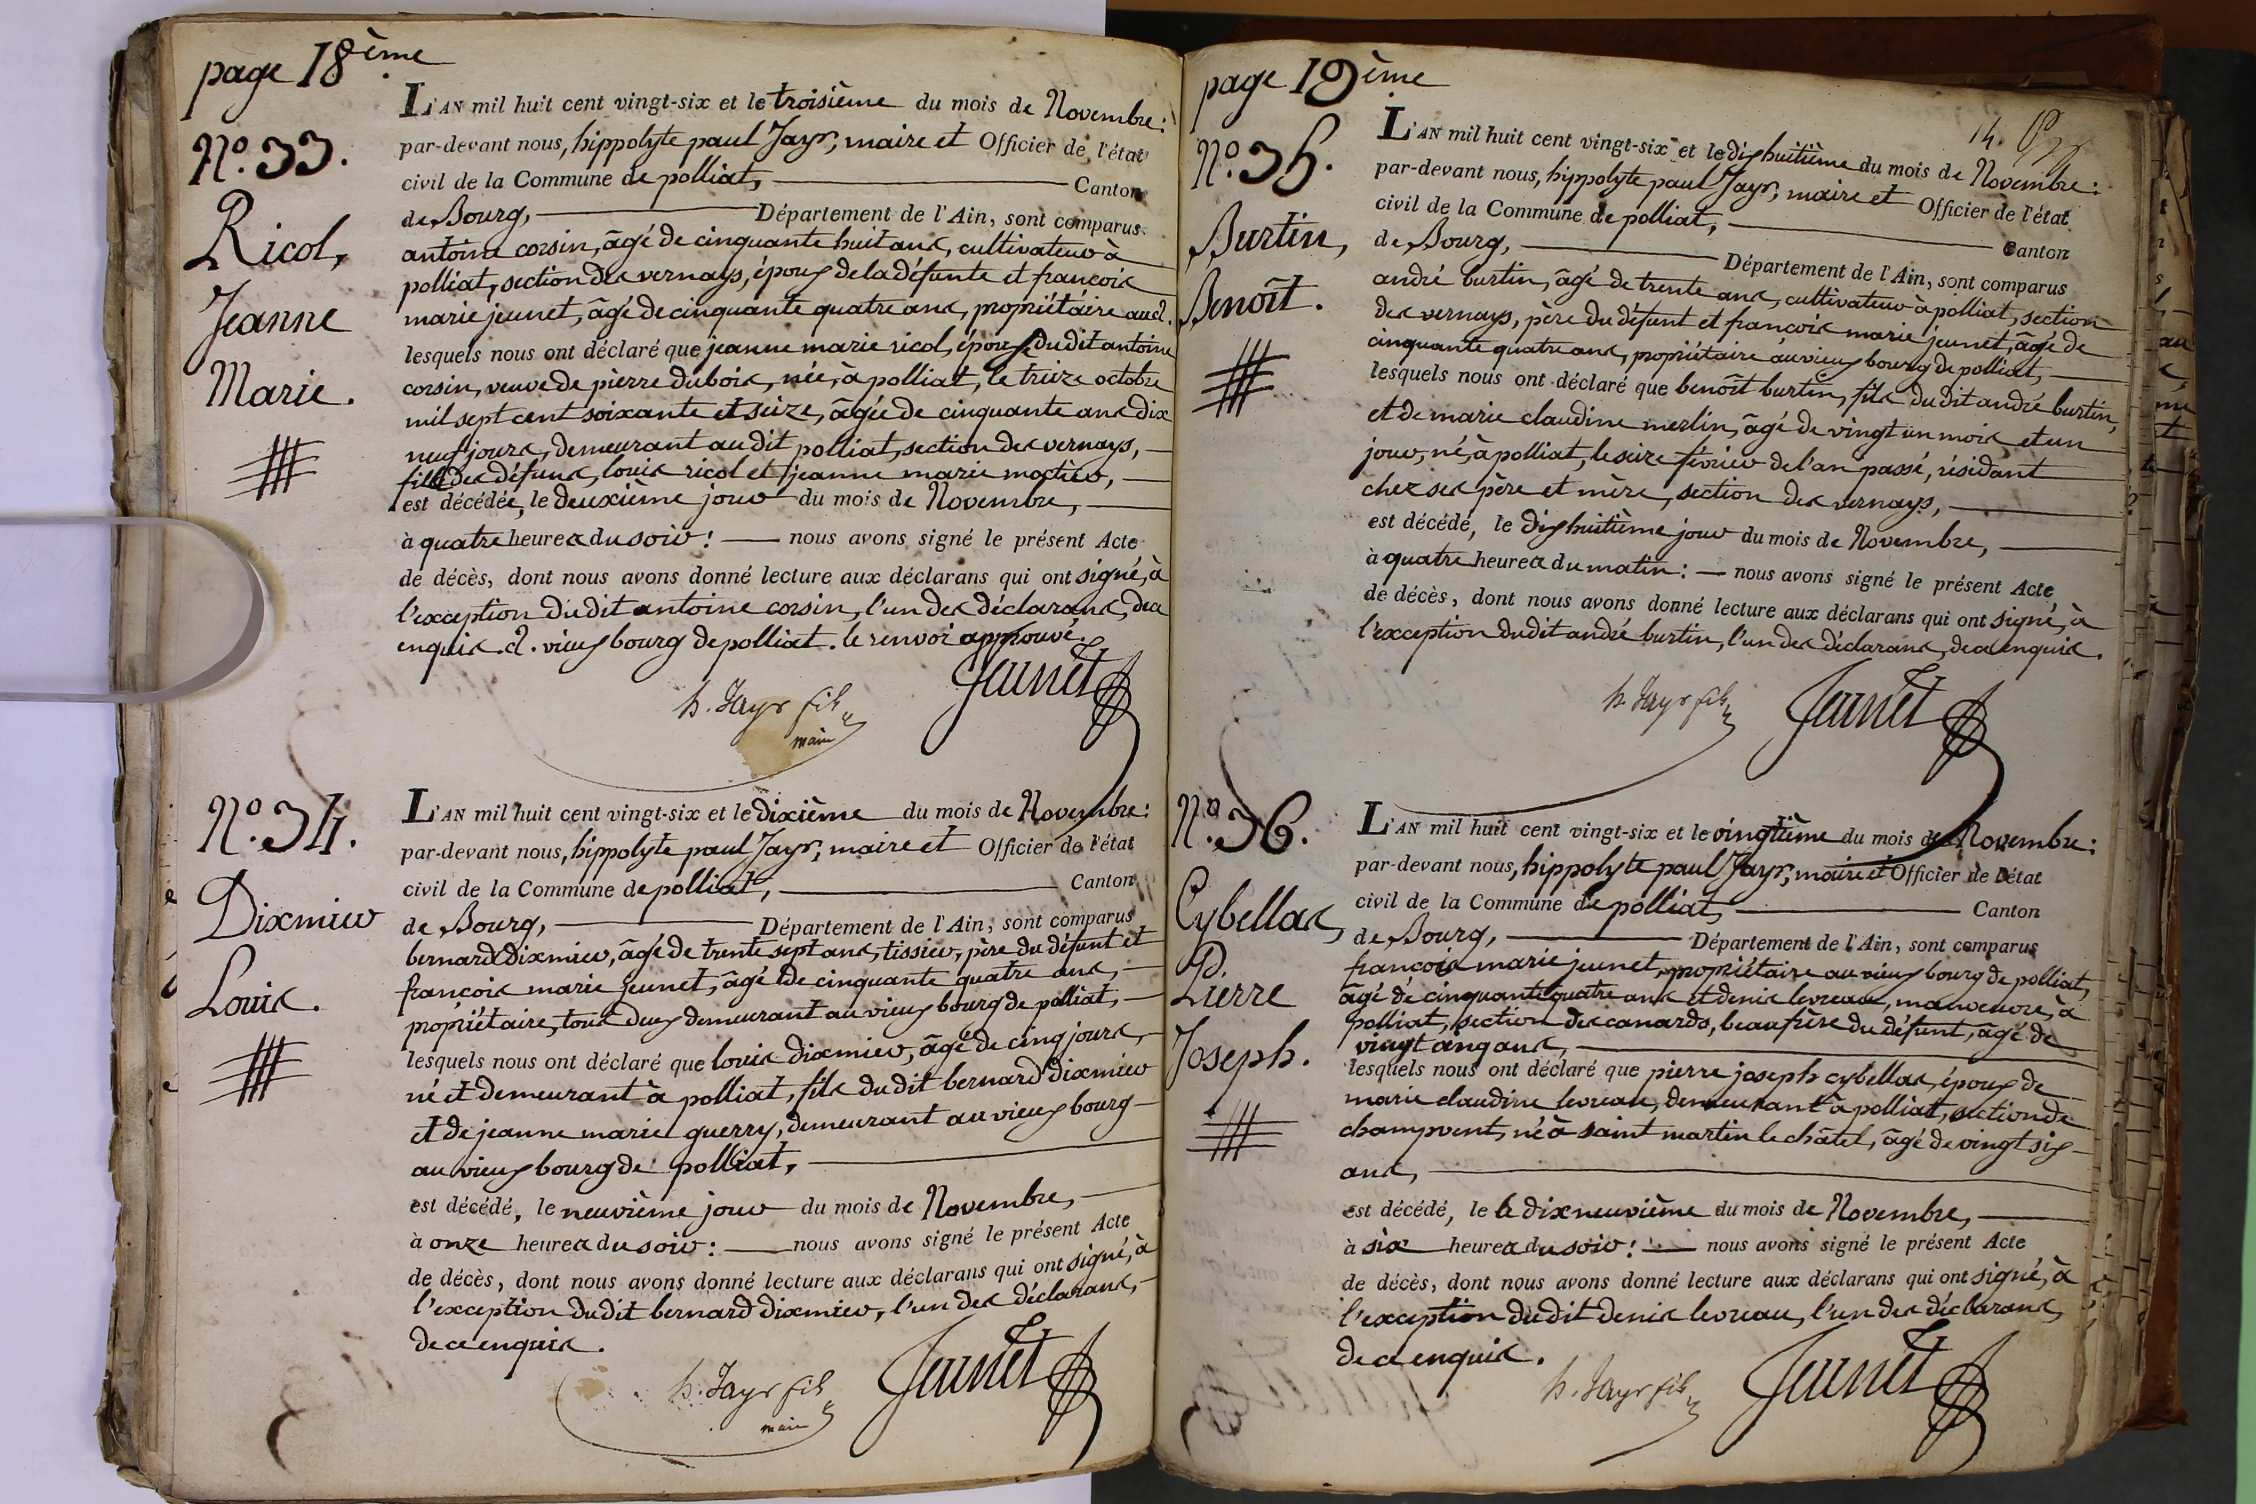 page 18ème
N.º 33.
Ricol,
Jeanne
Marie.
L'AN mil huit cent vingt-six et le troisième du mois de Novembre:
par-devant nous, hippolyte paul Jayr, maire et Officier de l'état
civil de la Commune de polliat, Canton
de Bourg, Département de l'Ain, sont comparus
antoine corsin, âgé de cinquante huit ans, cultivateur à
polliat, section des vernays, époux de la défunte et françois
marie jeunet, âgé de cinquante quatre ans, propriétaire au
lesquels nous ont déclaré que jeanne marie ricol, épouse du dit antoine
corsin, veuve de pierre dubois, née, à polliat, le treize octobre
mil sept cent soixante et seize, âgée de cinquante ans dix
neuf jours, demeurant au dit polliat, section des vernays,
fille des défuns, louis ricol et jeanne marie
est décédée, le deuxième jour du mois de Novembre,
à quatre heures du soir: nous avons signé le présent Acte
de décès, dont nous avons donné lecture aux déclarans qui ont signé, à
l'exception du dit antoine corsin, l'un des déclarans, de ce
enquis. vieux bourg de polliat. le renvoi approuvé.
h. Jayr fils Jeunet
maire
N.º 34.
Dixmier
Louis.
L'AN mil huit cent vingt-six et le dixième du mois de Novembre:
par-devant nous, hippolyte paul Jayr, maire et Officier de l'état
civil de la Commune de polliat, Canton
de Bourg, Département de l'Ain, sont comparus
bernard Dixmier, âgé de trente sept ans, tissier, père du défunt et
françois marie jeunet, âgé de cinquante quatre ans,
propriétaire, tous deux demeurant au vieux bourg de polliat,
lesquels nous ont déclaré que louis dixmier, âgé de cinq jours,
né et demeurant à polliat, fils du dit bernard dixmier
et de jeanne marie guerry, demeurant au vieux bourg
au vieux bourg de polliat,
est décédé, le neuvième jour du mois de Novembre,
à onze heures du soir: nous avons signé le présent Acte
de décès, dont nous avons donné lecture aux déclarans qui ont signé, à
l'exception du dit bernard dixmier, l'un des déclarans,
de ce enquis.
h. Jayr fils Jeunet
maire
page 19ème
14.
N.º 35.
Burtin,
Benoît.
L'AN mil huit cent vingt-six et le dixhuitième du mois de Novembre:
par-devant nous, hippolyte paul Jayr, maire et Officier de l'état
civil de la Commune de polliat,
de Bourg, Canton
Département de l'Ain, sont comparus
andré burtin, âgé de trente ans, cultivateur à polliat, section
des vernays, père du défunt et françois marie jeunet, âgé de
cinquante quatre ans, propriétaire au vieux bourg de polliat,
lesquels nous ont déclaré que benoît burtin, fils du dit andré burtin,
et de marie claudine merlin, âgé de vingt un mois et un
jour, né, à polliat, le seize février de l'an passé, résidant
chez ses père et mère, section des vernays,
est décédé, le dixhuitième jour du mois de Novembre,
à quatre heures du matin: nous avons signé le présent Acte
de décès, dont nous avons donné lecture aux déclarans qui ont signé, à
l'exception du dit andré burtin, l'un des déclarans, de ce enquis.
h. Jayr fils Jeunet
N.º 36.
Cybellas,
P.
Pierre
Joseph.
L'AN mil huit cent vingt-six et le vingtième du mois de Novembre:
par-devant nous, hippolyte paul Jayr, maire et Officier de l'état
civil de la Commune de polliat, Canton
de Bourg, Département de l'Ain, sont comparus
françois marie jeunet, propriétaire au vieux bourg de polliat,
âgé de cinquante quatre ans et denis levreau, manoeuvre, à
polliat, section des canards, beaufrère du défunt, âgé de
vingt cinq ans,
lesquels nous ont déclaré que pierre joseph cybellas, époux de
marie claudine levreau, demeurant à polliat, section de
champvent, né à saint martin le châtel, âgé de vingt six
ans,
est décédé, le le dixneuvième du mois de Novembre,
à six heures du soir: nous avons signé le présent Acte
de décès, dont nous avons donné lecture aux déclarans qui ont signé, à
l'exception du dit denis levreau, l'un des déclarans,
de ce enquis.
h. Jayr fils Jeunet